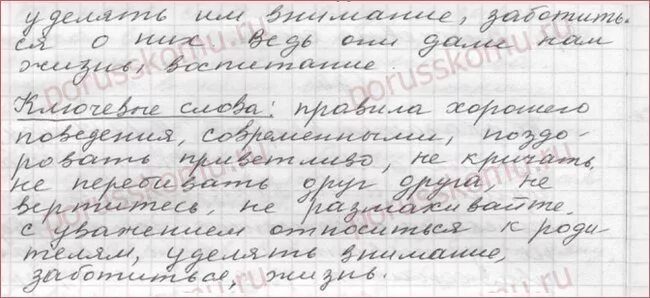 уделять им внимание, заботить-
ся о них. Ведь они дали нам
жизнь, воспитание.
Ключевые слова: правила хорошего
поведения, современными, поздо-
ровать приветливо, не кричать,
не перебивать друг друга, не
вертитесь, не размахивайте,
с уважением относиться к роди
телям, уделять внимание,
заботиться, жизнь.
porusskomu.ru